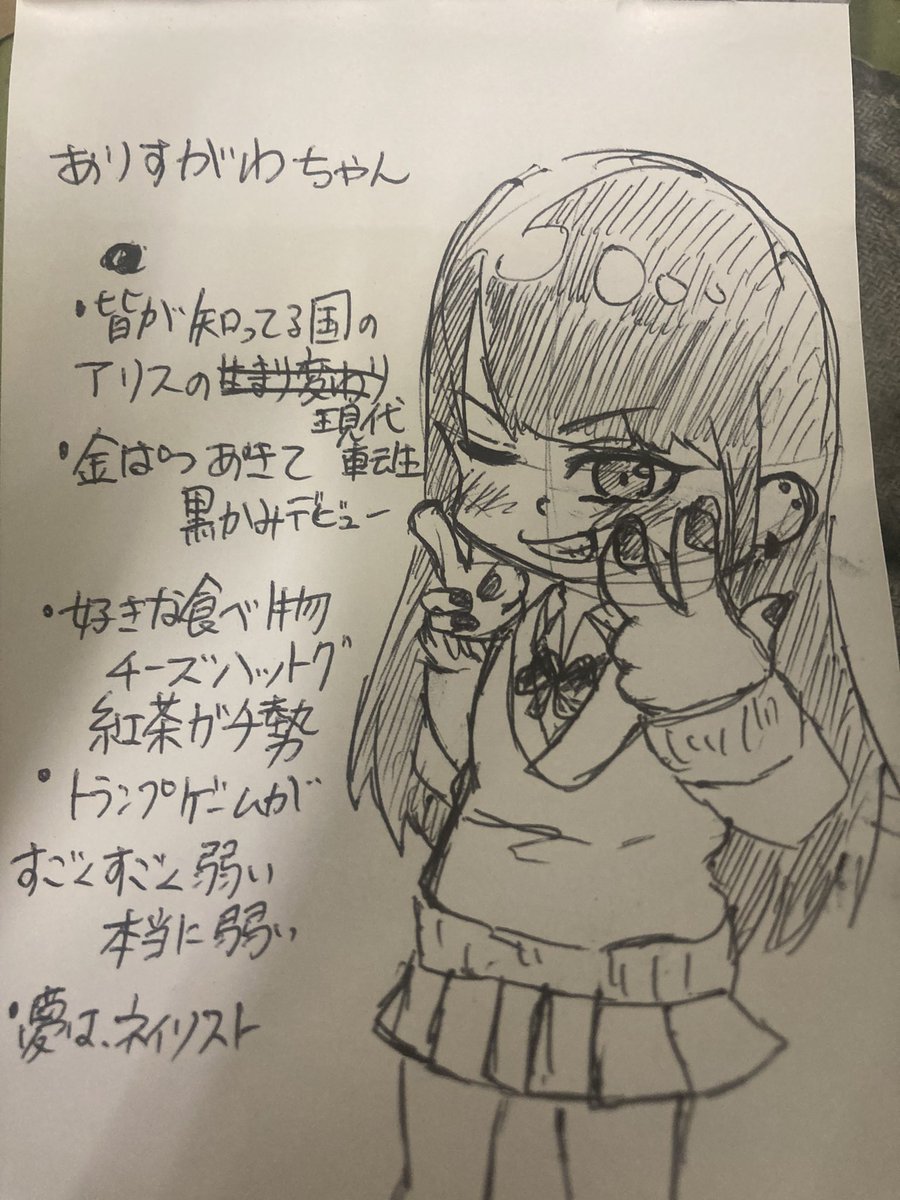 ありすがわちゃん
・皆が知ってる国の
アリスの生まり変わり
現代
転生
・金ぱつあきて
黒かみデビュー
・好きな食べ物
チーズハットグ
紅茶ガチ勢
・トランプゲームが
すごくすごく弱い
本当に弱い
・夢は、ネイリスト